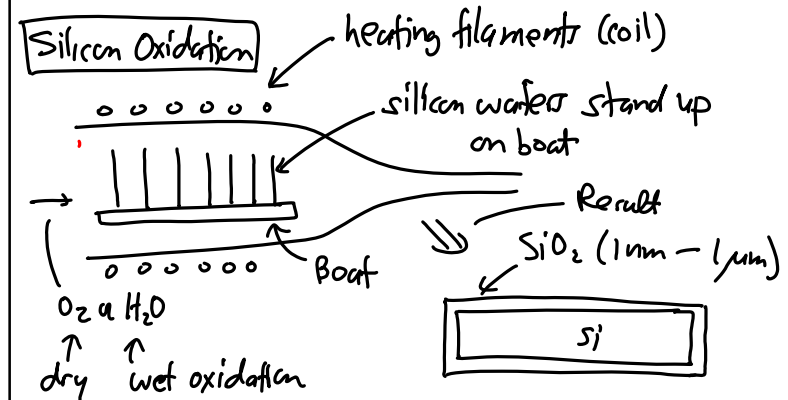 Silicon Oxidation
heating filaments (coil)
silicon wafers stand up
on boat
Result
SiO₂ (1nm – 1μm)
Boat
O₂ or H₂O
Si
dry wet oxidation